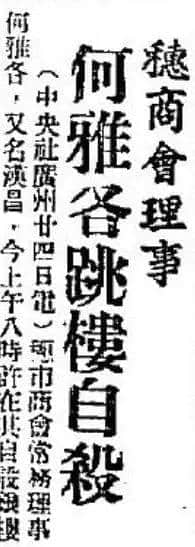 穗商會理事
何雅各跳樓自殺
（中央社廣州廿四日電）市商會常務理事
何雅各，又名漢昌，今上午八時許在其自殺樓